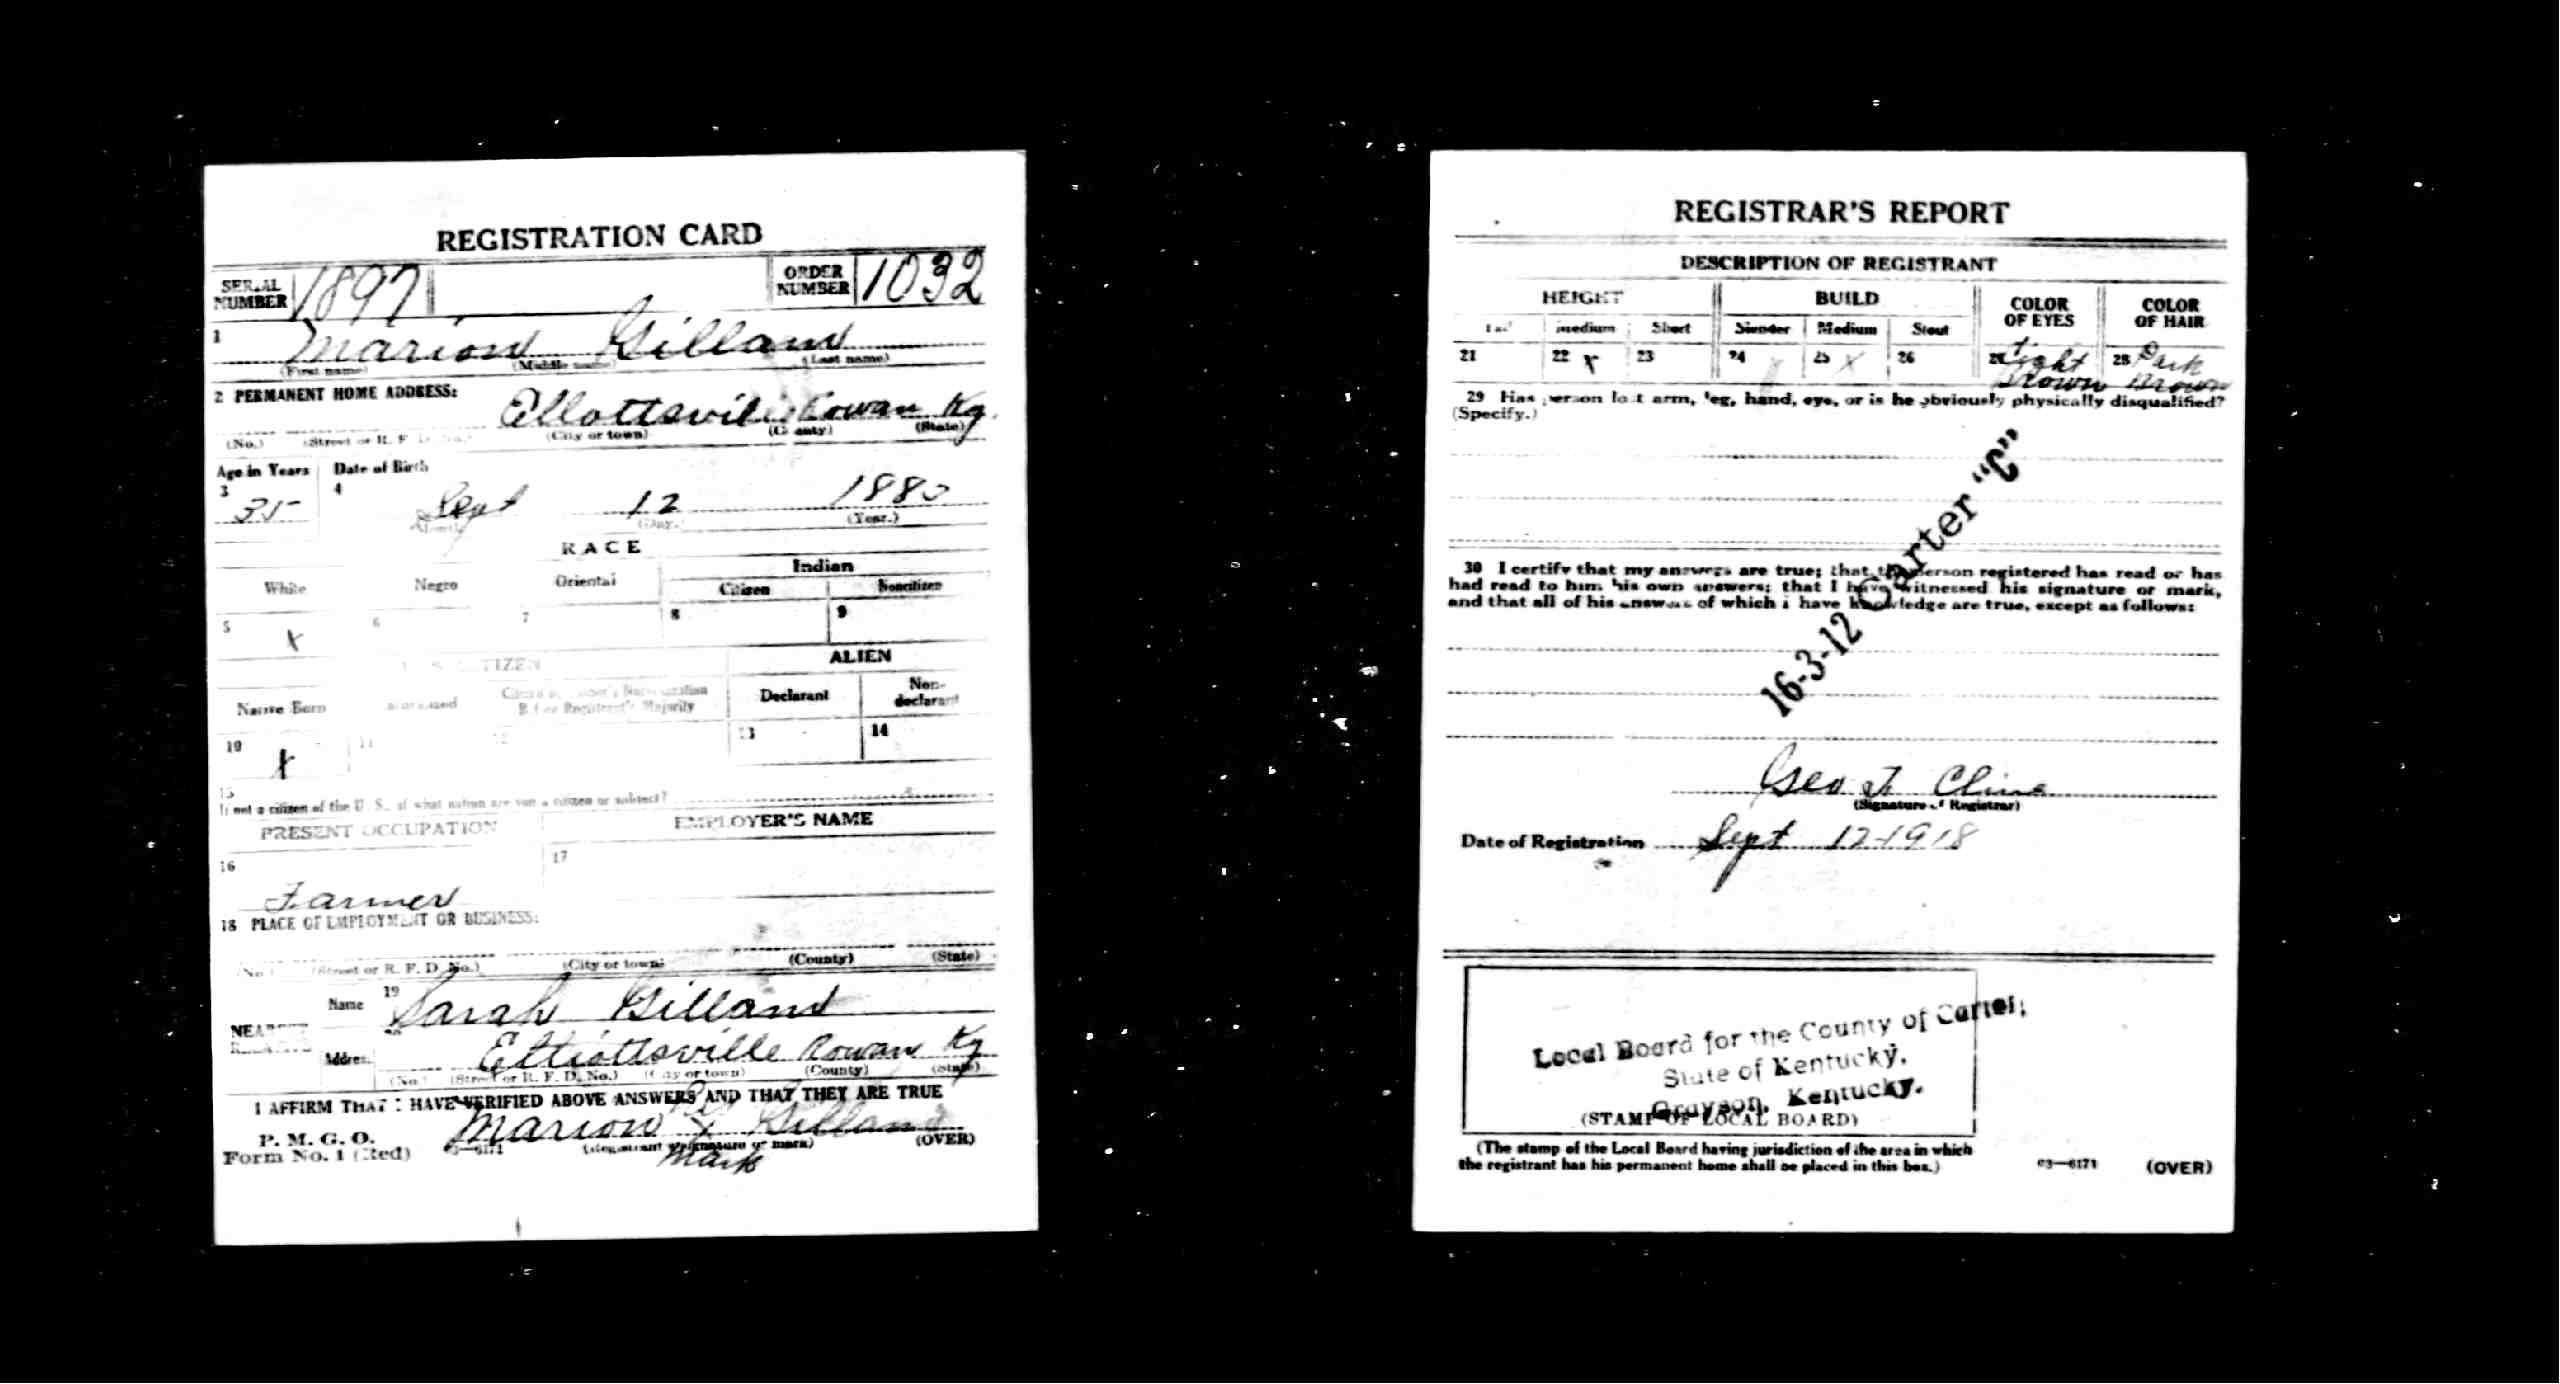 REGISTRATION CARD
SERIAL NUMBER 1897 ORDER NUMBER 1032
1 Marion Gillam
(First name) (Middle name) (Last name)
2 PERMANENT HOME ADDRESS:
Ellottsville Rowan Ky.
(No.) (Street or R. F. D. No.) (City or town) (County) (State)
Age in Years Date of Birth
3 35 4 Sept 12 1883
(Month.) (Day.) (Year.)
RACE
White Negro Oriental Indian
Citizen Noncitizen
5 X 6 7 8 9
U. S. CITIZEN ALIEN
Native Born Naturalized Citizen by Father's Naturalization Before Registrant's Majority Declarant Non-declarant
10 X 11 12 13 14
15
If not a citizen of the U. S., of what nation are you a citizen or subject?
PRESENT OCCUPATION EMPLOYER'S NAME
16 Farmer 17
18 PLACE OF EMPLOYMENT OR BUSINESS:
(No.) (Street or R. F. D. No.) (City or town) (County) (State)
NEAREST RELATIVE Name 19 Sarah Gillam
Address 20 Elliottsville Rowan Ky
(No.) (Street or R. F. D. No.) (City or town) (County) (State)
I AFFIRM THAT I HAVE VERIFIED ABOVE ANSWERS AND THAT THEY ARE TRUE
P. M. G. O.
Form No. 1 (Red) Marion X Gillam
03—6171 (Registrant's signature or mark) (OVER)
Mark
REGISTRAR'S REPORT
DESCRIPTION OF REGISTRANT
HEIGHT BUILD COLOR OF EYES COLOR OF HAIR
Tall Medium Short Slender Medium Stout
21 22 X 23 24 25 X 26 27 Light Brown 28 Dark Brown
29 Has person lost arm, leg, hand, eye, or is he obviously physically disqualified?
(Specify.)
16-3-12 Carter "C"
30 I certify that my answers are true; that the person registered has read or has
had read to him his own answers; that I have witnessed his signature or mark,
and that all of his answers of which I have knowledge are true, except as follows:
Geo T. Cline
(Signature of Registrar)
Date of Registration Sept 12-1918
Local Board for the County of Carter,
State of Kentucky,
Grayson, Kentucky.
(STAMP OF LOCAL BOARD)
(The stamp of the Local Board having jurisdiction of the area in which
the registrant has his permanent home shall be placed in this box.)
03—6171 (OVER)